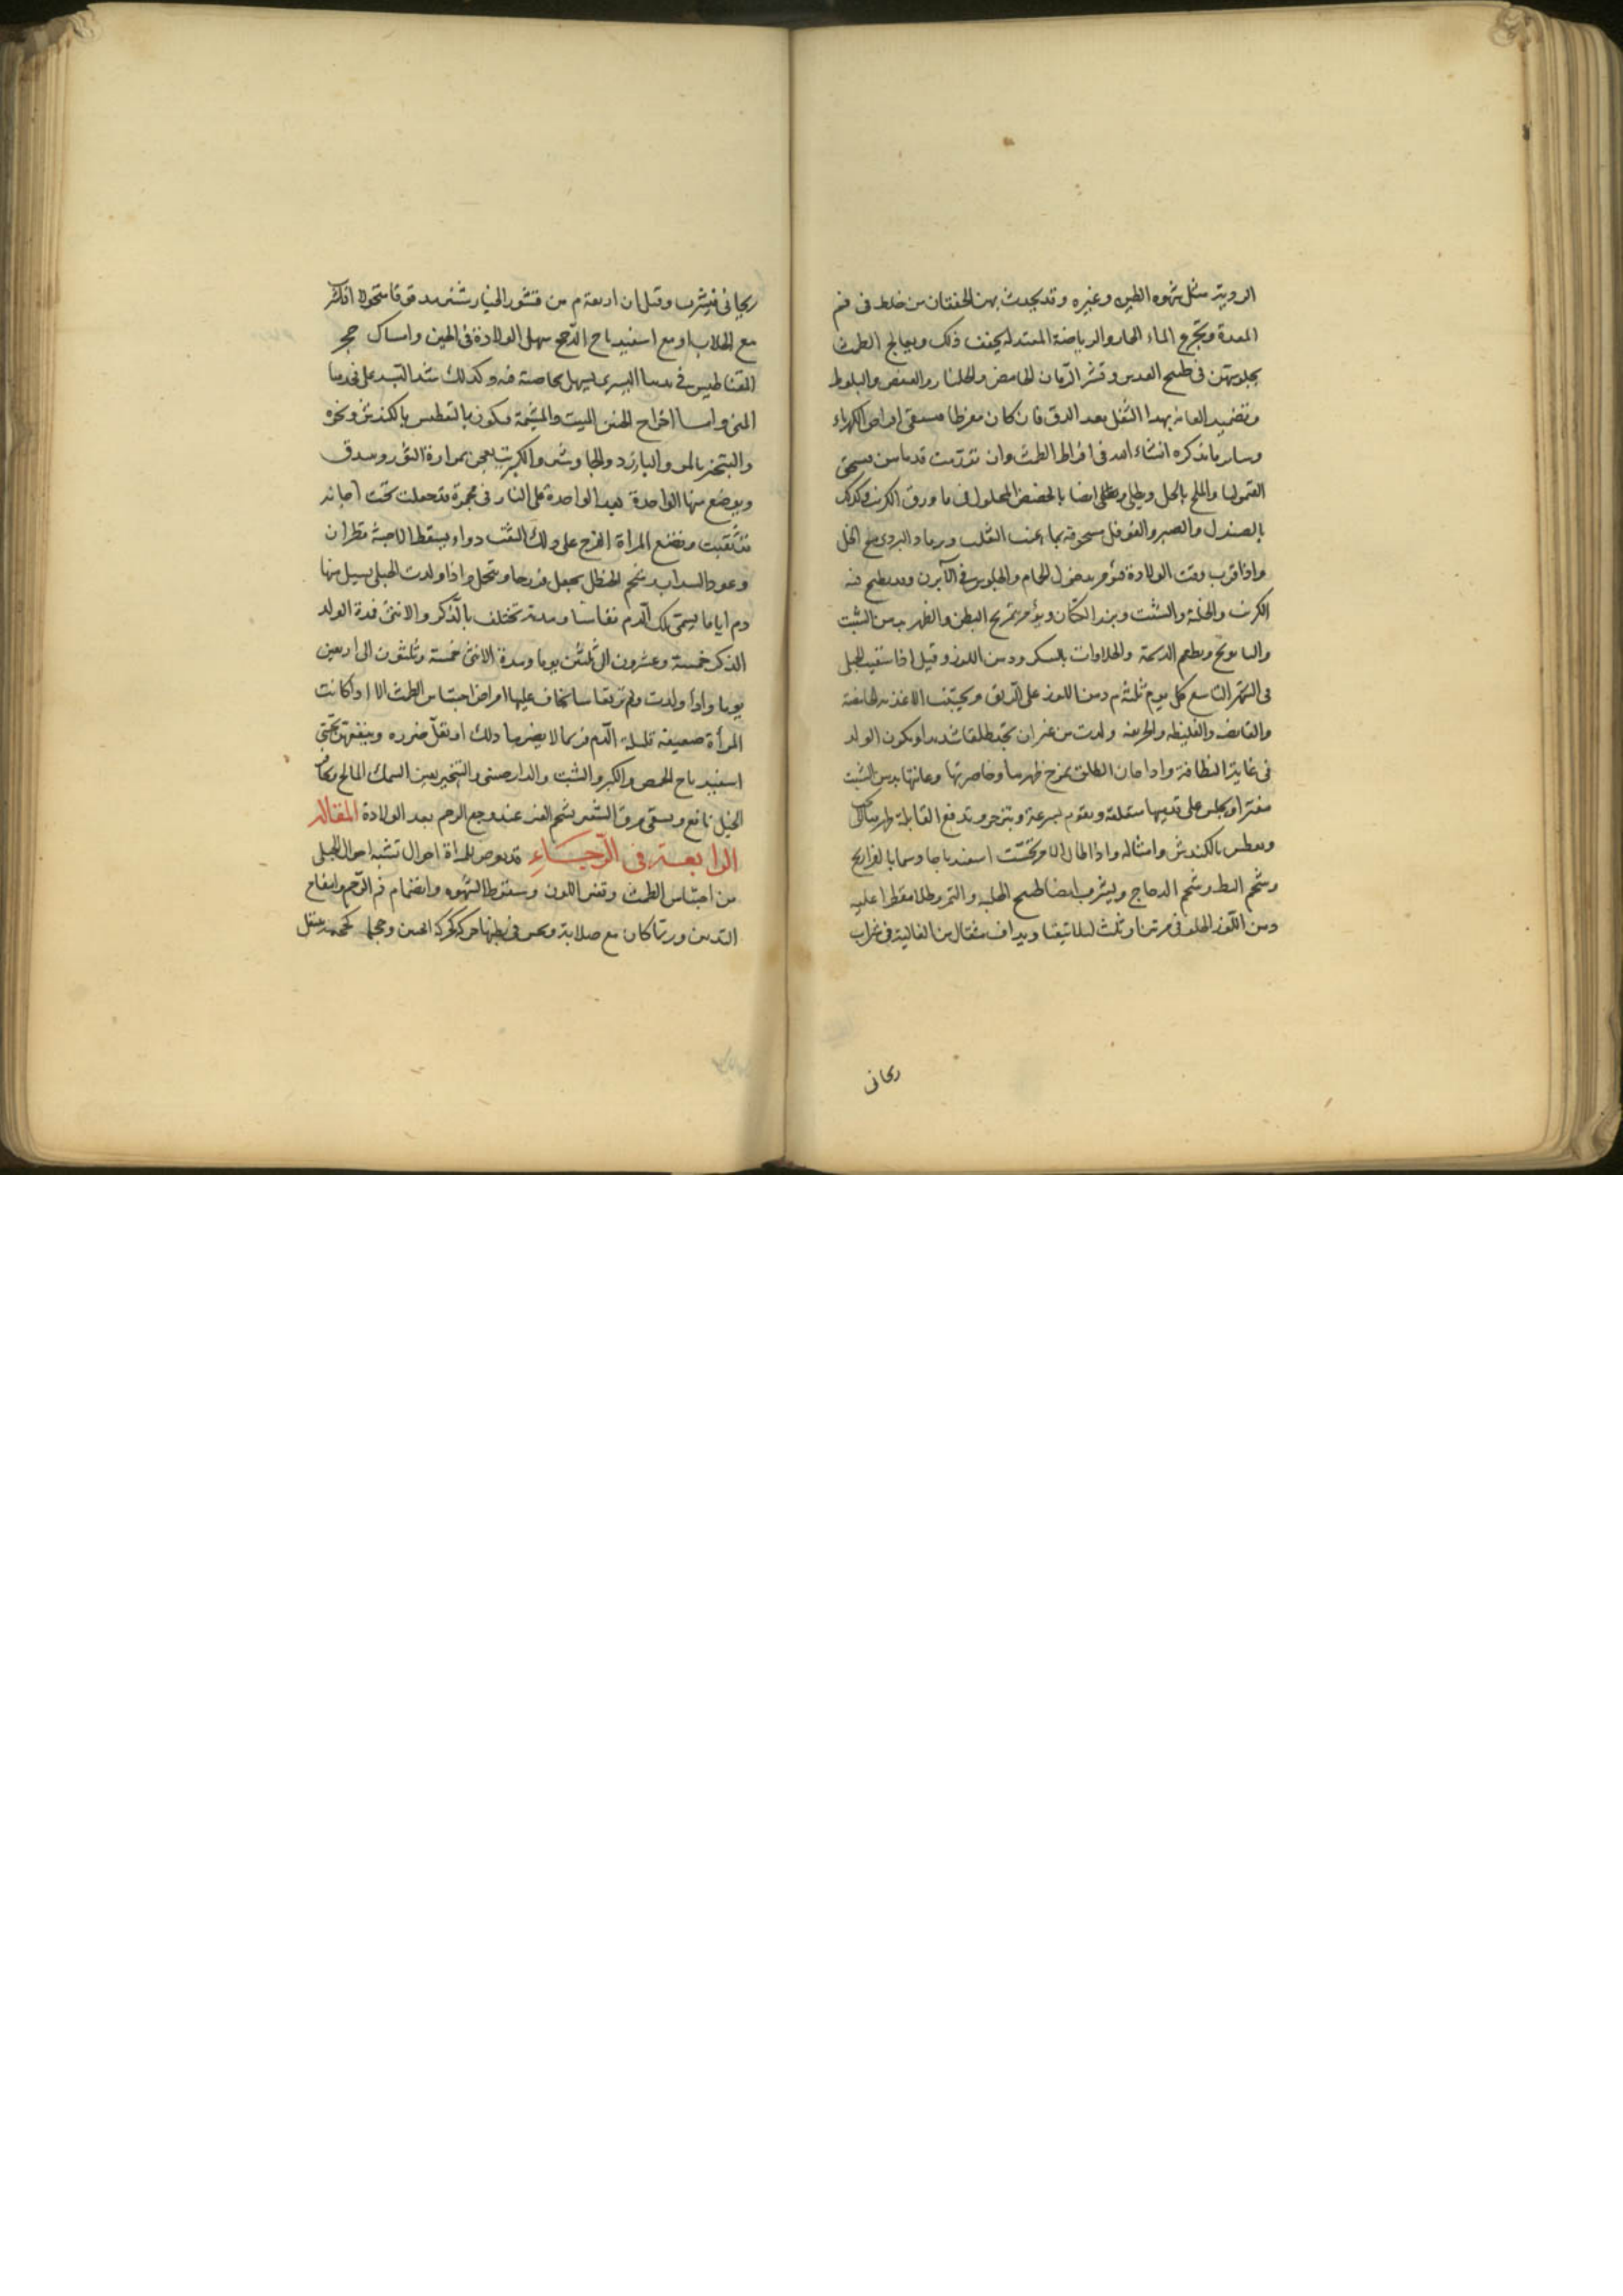 الردية مثل شهوة الطين وغيره وقد يحدث بهن الخفقان من خلط فى فم
المعدة وتجرع الماء الحار والرياضة المعتدلة يخفف ذلك ويعالج الطمث
بجلوسهن فى طبيخ العدس وقشر الرمان الحامض والجلنار والعفص والبلوط
وتضميد العانة بهذا الثفل بعد الدق فان كان مفرطا فيسقى اقراص الكهرباء
وسائر ما نذكره انشاء الله فى افراط الطمث وان تورمت قدماهن
القيموليا والملح بالخل ويطلى ايضا بالحضض المحلول فى ماء ورق الكرنب وكذلك
بالصندل والصبر والفوفل مسحوقة بماء عنب الثعلب ورماد البردى مع الخل
واذا قرب وقت الولادة فتؤمر بدخول الحمام والجلوس فى الآبزن وقد طبخ فيه
الكرنب والحلبة والشبت وبزر الكتان ويؤمر بتمريخ البطن والظهر بدهن الشبت
والبابونج ويطعم الدسمة والحلاوات بالسكر ودهن اللوز وقيل اذا سقيت الحبلى
فى الشهر التاسع كل يوم ثلثة م دهن اللوز على الريق وتجتنب الاغذية الحامضة
والقابضة والغليظة والحريفة ولدت من غير ان تجد طلقا شديدا ويكون الولد
فى غاية النظافة واذا حان الطلق يمرخ ظهرها وخاصرتها وعانتها بدهن الشبت
مفترا وتجلس على قدميها وتقوم بسرعة وتتزحر وتدفع القابلة ظهرها
وتعطس بالكندش وامثاله واذا طال تحسّت اسفيدباجا دسما بالفراريج
وشحم البط وشحم الدجاج ويشرب ايضا طبيخ الحلبة والتمر وطلا مقطرا عليه
دهن اللوز الحلو فى مرتين او ثلث ويداف مثقال من الغالية فى شراب
ريحانى
ريحانى فيشرب وقيل ان اربعة م من قشور الخيارشنبر مدقوقا منخولا اذا شرب
مع الجلاب او مع اسفيدباج الدجج سهل الولادة فى الحين وامساك حجر
المقناطيس فى يدها اليسرى يسهل بخاصية فيه وكذلك شد البسد على فخذها
اليمنى واما اخراج الجنين الميت والمشيمة فيكون بالتعطيس بالكندش ونحوه
والتبخير بالمر والبارزد والجاوشير والكبريت يعجن بمرارة الثور ويبندق
ويوضع منها الواحدة بعد الواحدة على النار فى مجمرة قد جعلت تحت اجانة
قد ثقبت وتضع المراة الفرج على ذلك الثقب دواء يسقط الاجنة قطران
وعود السذاب وشحم الحنظل يجعل فرزجة ويتحمل واذا ولدت الحبلى يسيل منها
دم اياما يسمى ذلك الدم نفاسا ومدته تختلف بالذكر والانثى فمدة الولد
الذكر خمسة وعشرون الى ثلثين يوما ومدة الانثى خمسة وثلثون الى اربعين
يوما واذا ولدت ولم تر نفاسا يخاف عليها امراض احتباس الطمث الا اذا كانت
المرأة ضعيفة قليلة الدم فربما لا يضرها ذلك او يقل ضرره وينفعهن تحسّى
اسفيدباج الحمص والكبر والشبت والدارصينى والتبخير بعين السمك المالح وحافر
الخيل نافع ويسقى مرق الشعير بشحم العنز عند وجع الرحم بعد الولادة المقالة
الرابعة فى الرّجاءِ قد يعرض للمراة احوال تشبه احوال الحبلى
من احتباس الطمث وتغير اللون وسقوط الشهوة وانضمام فم الرحم وانتفاخ
الثديين وربما كان مع صلابة وتحس فى بطنها حركة كحركة الجنين وحجما كحجمه ينتقل